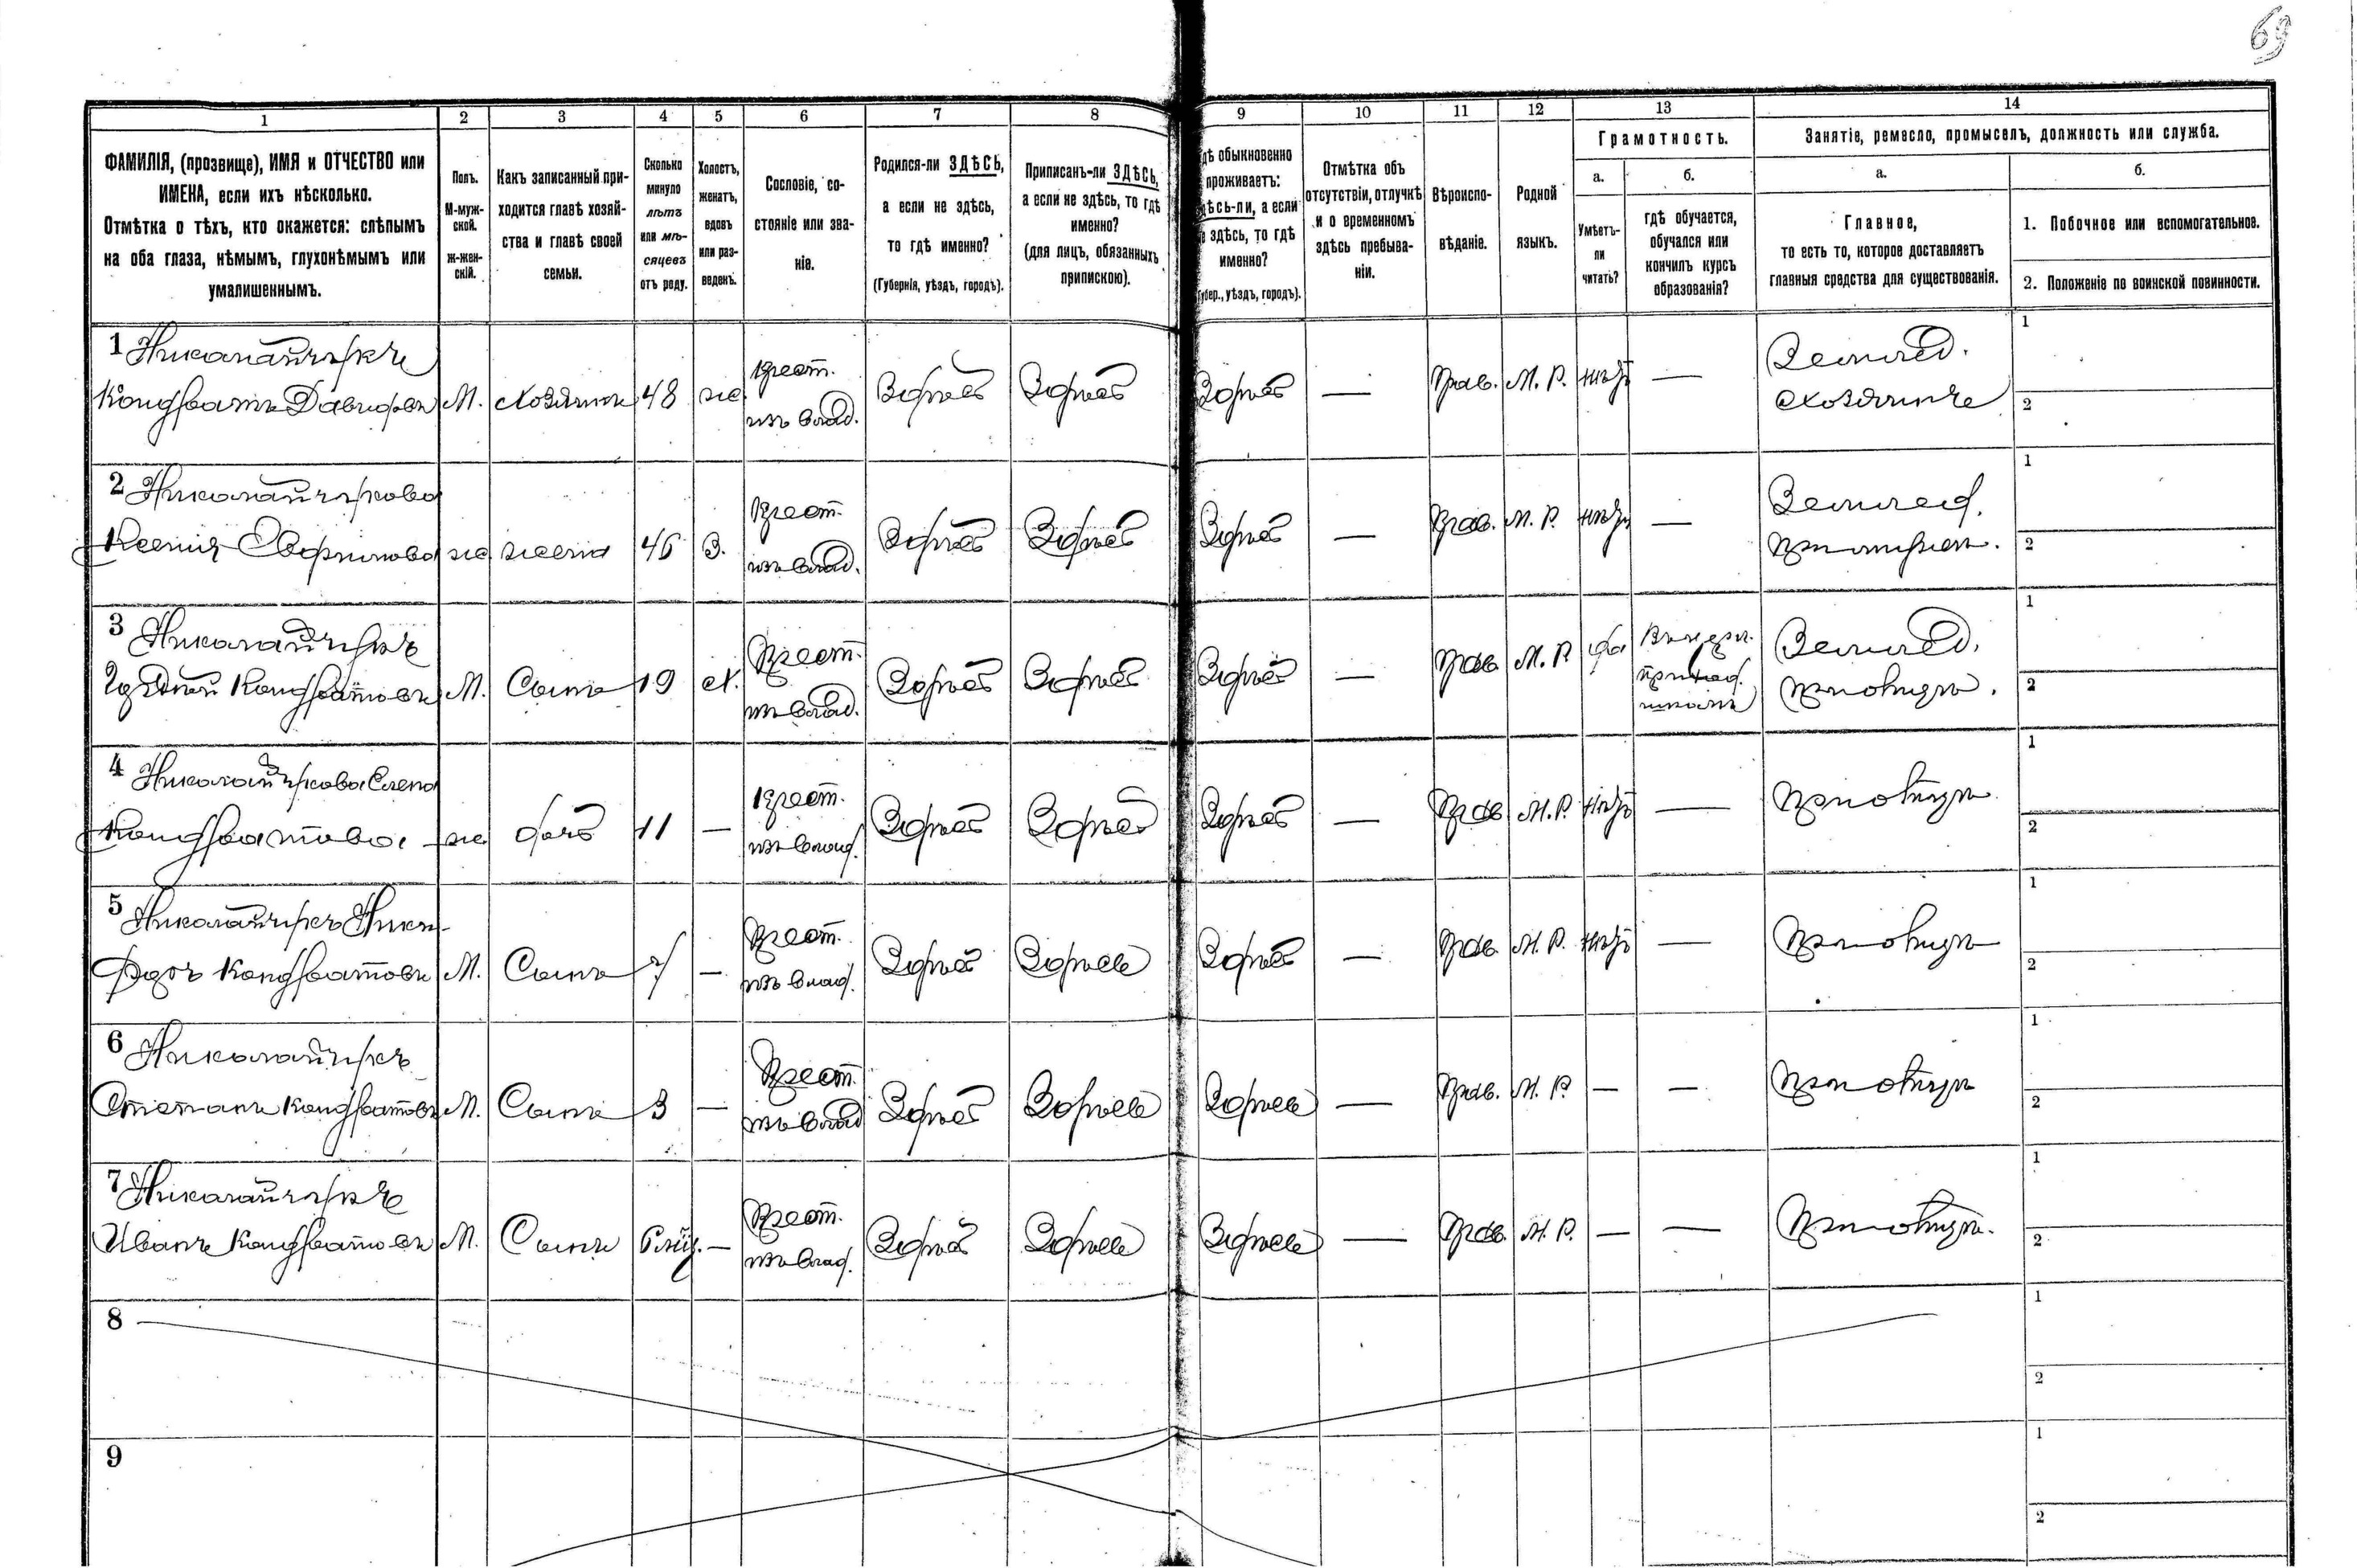 69
1 2 3 4 5 6 7 8 9 10 11 12 13 14
ФАМИЛІЯ, (прозвище), ИМЯ и ОТЧЕСТВО или
ИМЕНА, если ихъ нѣсколько.
Отмѣтка о тѣхъ, кто окажется: слѣпымъ
на оба глаза, нѣмымъ, глухонѣмымъ или
умалишеннымъ.
Полъ.
М-муж-
ской.
ж-жен-
скій.
Какъ записанный при-
ходится главѣ хозяй-
ства и главѣ своей
семьи.
Сколько
минуло
лѣтъ
или мѣ-
сяцевъ
отъ роду.
Холостъ,
женатъ,
вдовъ
или раз-
веденъ.
Сословіе, со-
стояніе или зва-
ніе.
Родился-ли ЗДѢСЬ,
а если не здѣсь,
то гдѣ именно?
(Губернія, уѣздъ, городъ).
Приписанъ-ли ЗДѢСЬ,
а если не здѣсь, то гдѣ
именно?
(для лицъ, обязанныхъ
припискою).
дѣ обыкновенно
проживаетъ:
дѣсь-ли, а если
е здѣсь, то гдѣ
именно?
Губер., уѣздъ, городъ).
Отмѣтка объ
отсутствіи, отлучкѣ
и о временномъ
здѣсь пребыва-
ніи.
Вѣроиспо-
вѣданіе.
Родной
языкъ.
Грамотность.
а.
Умѣетъ-
ли
читать?
б.
гдѣ обучается,
обучался или
кончилъ курсъ
образованія?
Занятіе, ремесло, промыселъ, должность или служба.
а.
Главное,
то есть то, которое доставляетъ
главныя средства для существованія.
б.
1. Побочное или вспомогательное.
2. Положеніе по воинской повинности.
1 Николайчукъ
Кондратъ Давидовъ М. хозяинъ 48 же крест.
изъ влад. Здѣсь Здѣсь Здѣсь — Прав. М. Р. нѣтъ — Землед.
хозяинъ 1 2
2 Николайчукова
Ксенія м. жена 46 З. крест.
изъ влад. Здѣсь Здѣсь Здѣсь — Прав. М. Р. нѣтъ — Землед.
1 2
3 Николайчукъ
Кондратовъ М. Сынъ 19 х. Крест.
изъ влад. Здѣсь Здѣсь Здѣсь — Прав. М. Р. да
приход.
школѣ Землед.
при отцѣ. 1 2
4 Николайчукова Елена
Кондратова же дочь 11 — крест.
изъ влад. Здѣсь Здѣсь Здѣсь — Прав. М. Р. нѣтъ — при отцѣ 1 2
5 Николайчукъ Ники-
форъ Кондратовъ М. Сынъ 7 — Крест.
изъ влад. Здѣсь Здѣсь Здѣсь — Прав. М. Р. нѣтъ — при отцѣ 1 2
6 Николайчукъ
Степанъ Кондратовъ М. Сынъ 3 — Крест.
изъ влад. Здѣсь Здѣсь Здѣсь — Прав. М. Р. — — при отцѣ 1 2
7 Николайчукъ
Иванъ Кондратовъ М. Сынъ — Крест.
изъ влад. Здѣсь Здѣсь Здѣсь — Прав. М. Р. — — при отцѣ. 1 2
8 1 2
9 1 2